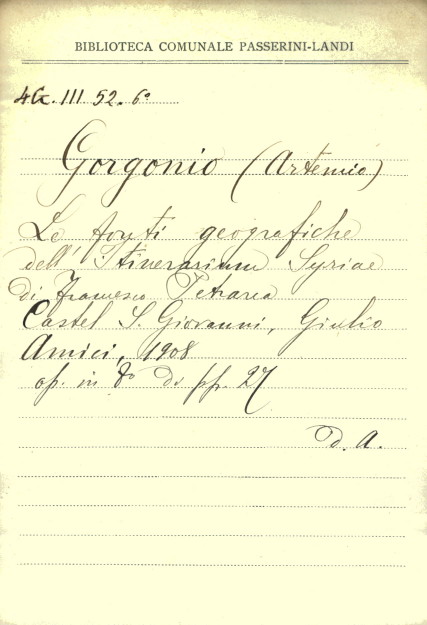 BIBLIOTECA COMUNALE PASSERINI-LANDI
4G. III 52. 6º
Gorgonio (Artemio)
Le fonti geografiche
dell' Itinerarium Syriae
di Francesco Petrarca
Castel S. Giovanni, Giulio
Amici, 1908
op. in 8º di pp. 27
D. A.